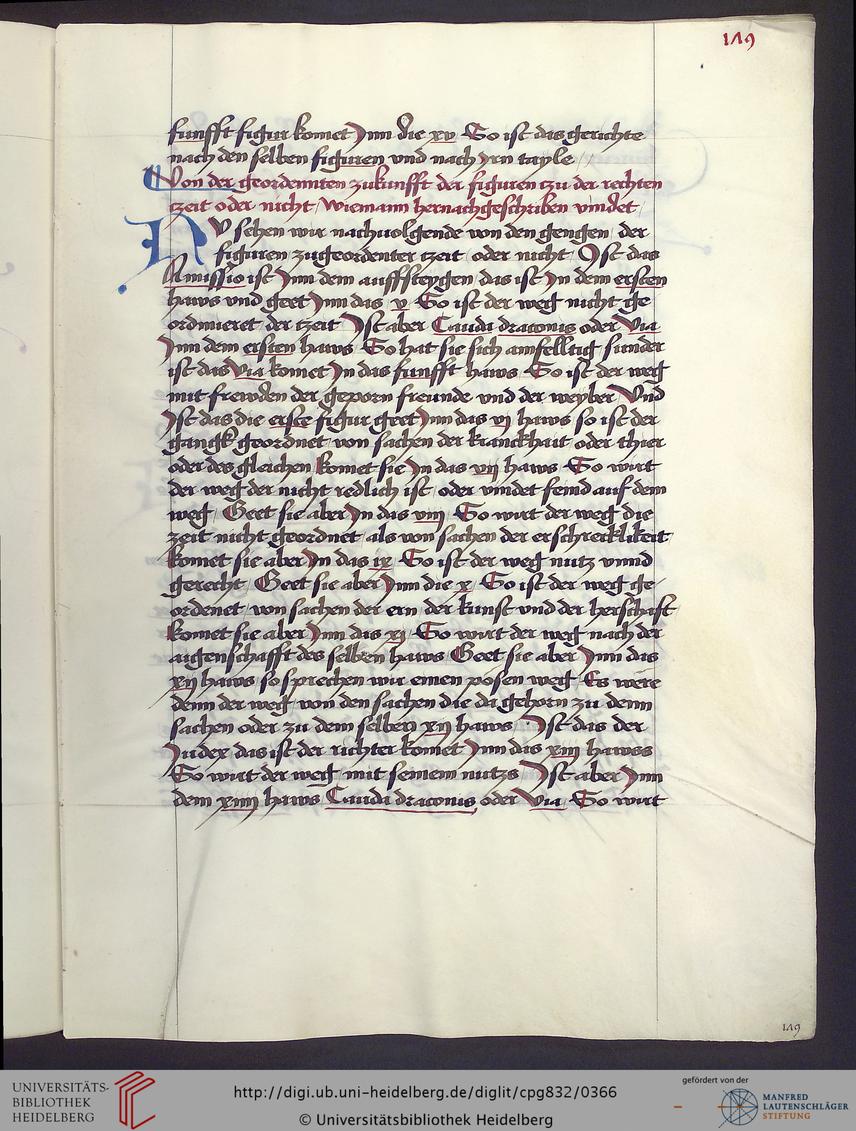 179
funfft figur komet Inn die xv So ist das gerichte
nach den selben figuren vnd nach irn tayle
Von der geordennten zukunfft der figuren tzu der rechten
tzeit oder nicht / wiemann hernachgeschriben vindet
NV sehen wir nachuolgende von den gengen der
figuren zugeordenter tzeit oder nicht Ist das
Amissio ist Inn dem auffsteygen das ist In dem ersten
haws vnd geet Inn das v So ist der weg nicht ge
ordinieret der tzeit Ist aber Cauda draconis oder Via
Inn dem ersten haws So hat sie sich ainfelltig sunder
ist das Via komet In das funfft haws So ist der weg
mit frewden der geporn freunde vnd der weyber Vnd
Ist das die erste figur geet Inn das vj haws so ist der
gangk geordnet von sachen der kranckhait oder thier
oder des gleichen komet sie In das vij haws So wirt
der weg der nicht redlich ist oder vindet feind auf dem
weg Geet sie aber In das viij So wirt der weg die
zeit nicht geordnet als von sachen der erschrecklikeit
komet sie aber In das ix So ist der weg nutz vnnd
gerecht Geet sie aber Inn die x So ist der weg ge
ordenet von sachen der ern der kunst vnd der herschafft
komet sie aber Inn das xj So wirt der weg nach der
aigenschafft des selben haws Geet sie aber Inn das
xij haws so sprechen wir einen posen weg Es were
denn der weg von den sachen die da gehorn zu denn
sachen oder zu dem selben xij haws Ist das der
Iudex das ist der richter komet Inn das xiij hawss
So wirt der weg mit seinem nutzs Ist aber Inn
dem xiiij haws Cauda draconis oder Via So wirt
179
UNIVERSITÄTS-
BIBLIOTHEK
HEIDELBERG
http://digi.ub.uni-heidelberg.de/diglit/cpg832/0366
© Universitätsbibliothek Heidelberg
gefördert von der
MANFRED
LAUTENSCHLÄGER
STIFTUNG